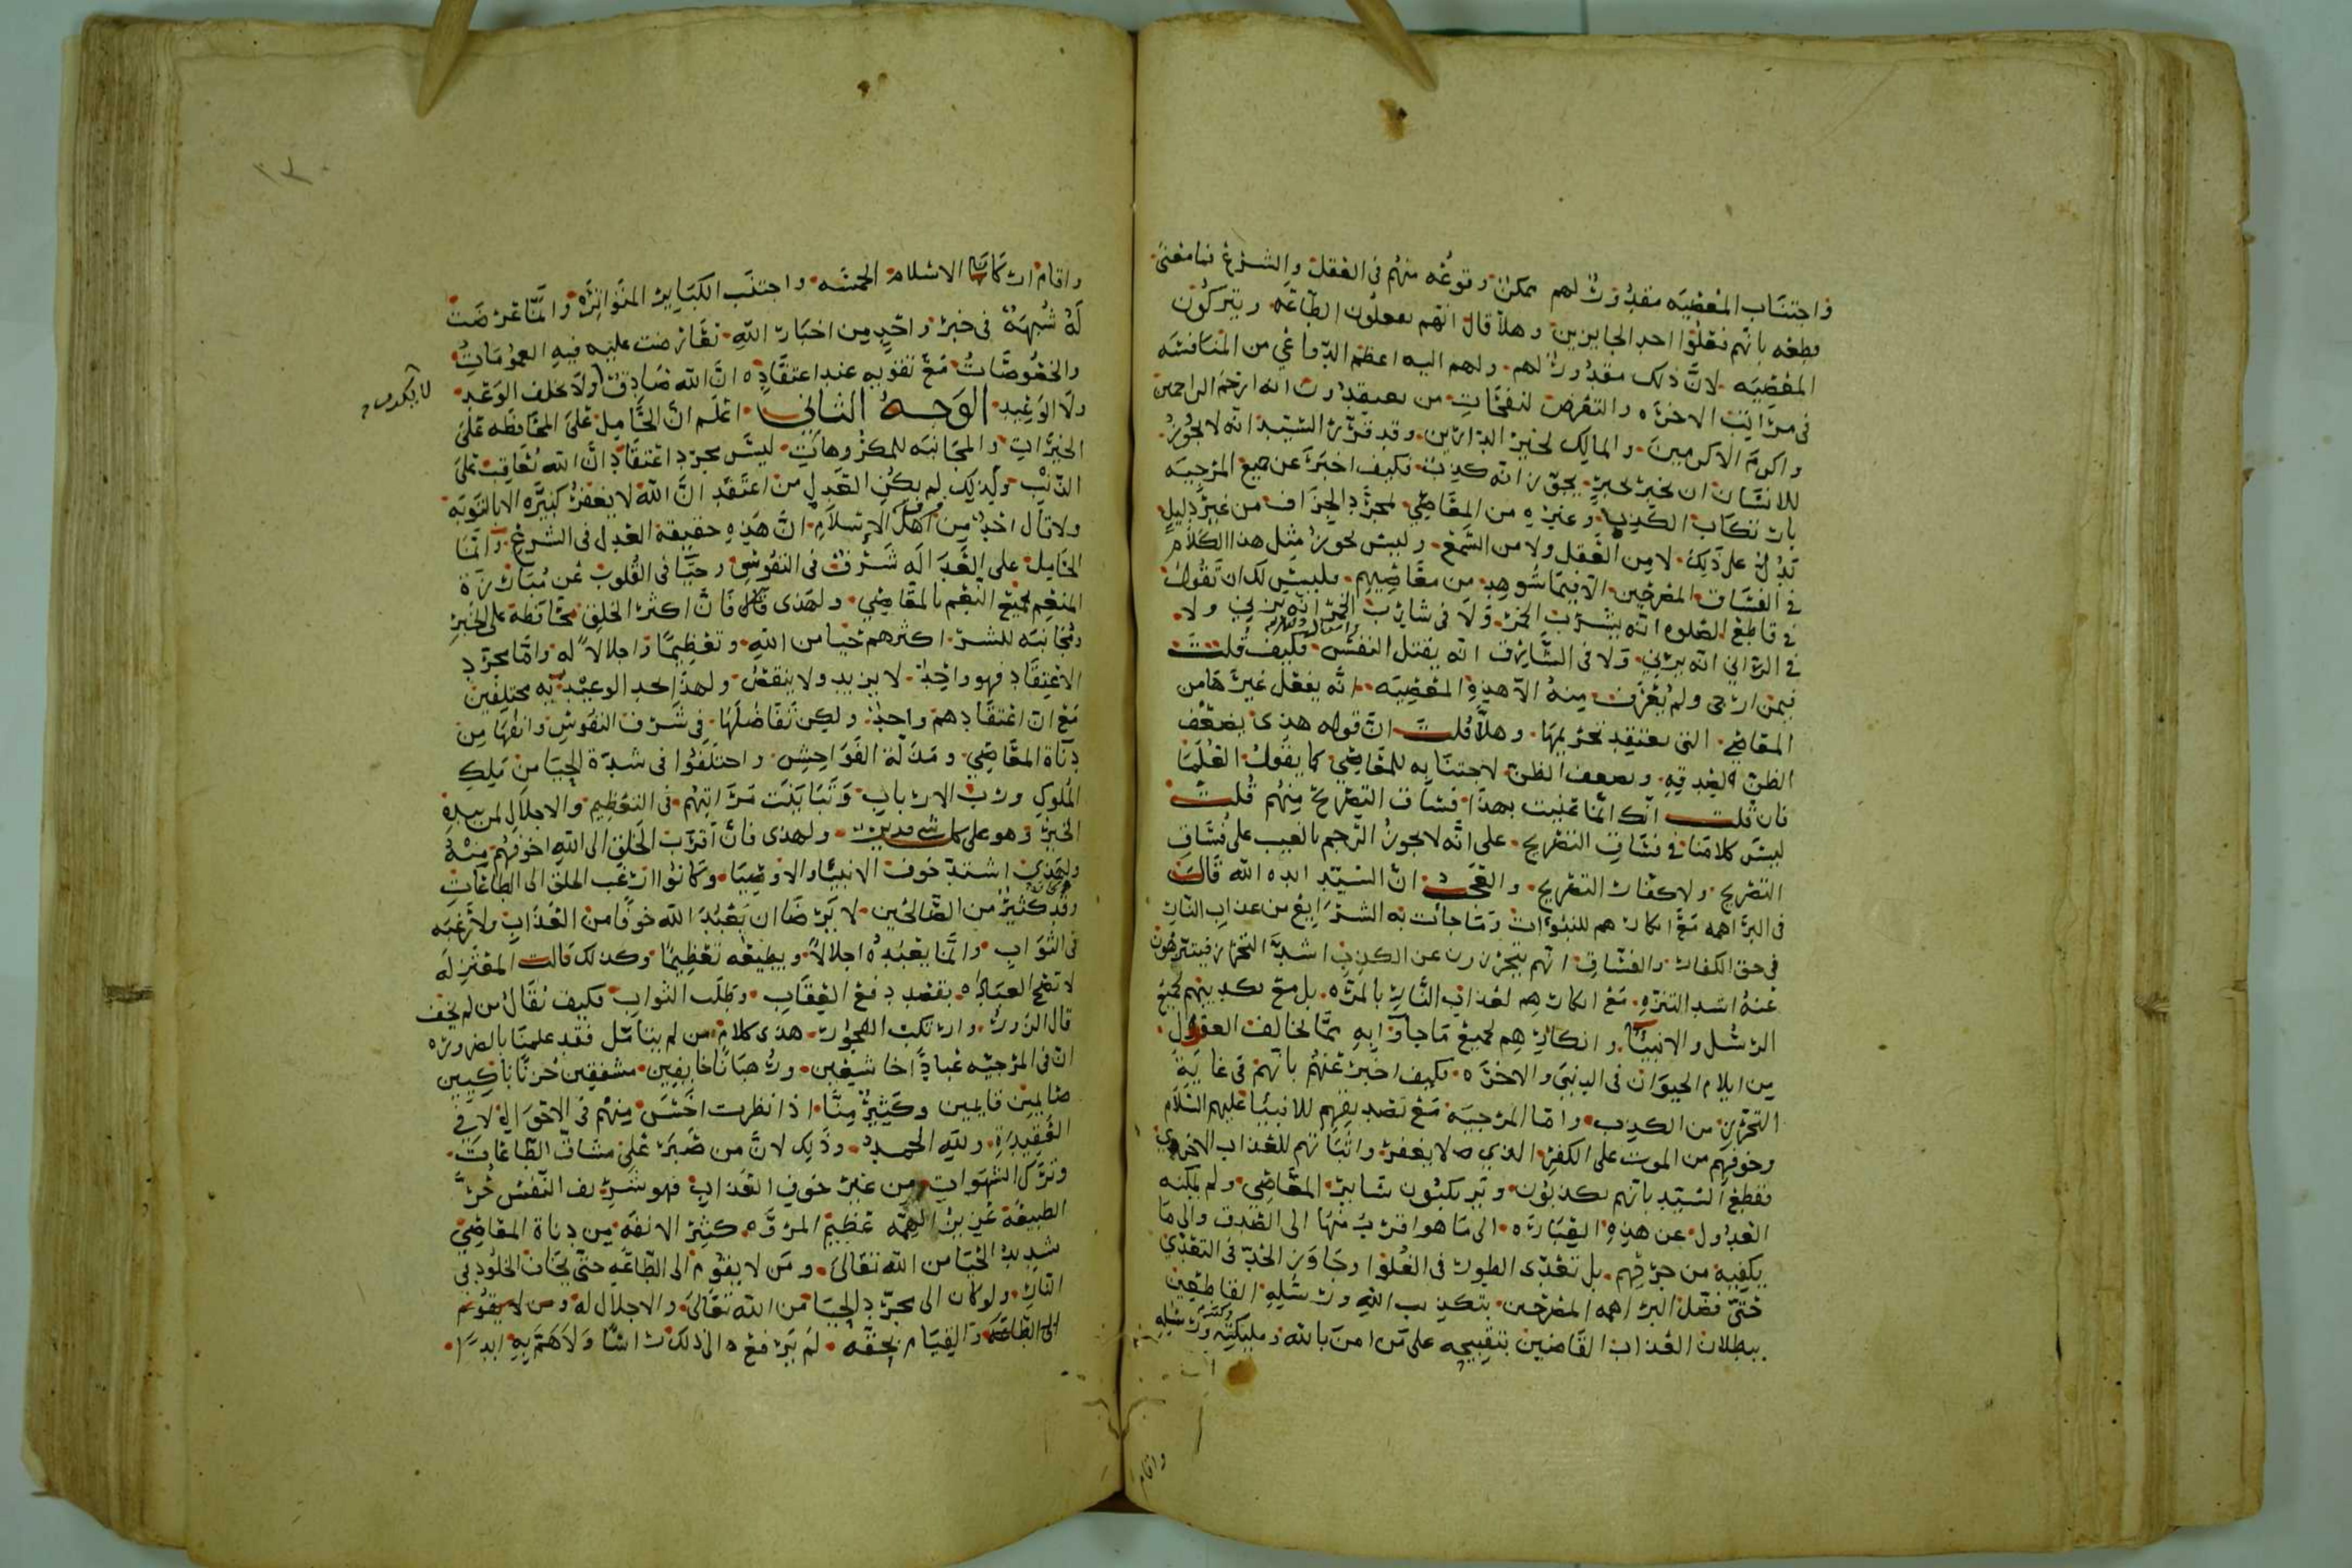 واجتناب المعصيه مقدور لهم ممكن وقوعه منهم في العقل والشرع فما معنى
قطعه بانهم فعلوا احد الجايزين وهلا قال انهم يفعلون الطاعه ويتركون
المعصيه لان ذلك مقدور لهم ولهم اليه اعظم الدواعي من المنافسه
في مراتب الاخره والتعرض لنفحات من يعتقدون انه ارحم الراحمين
واكرم الاكرمين والمالك لخير الدارين وقد قرر السيد انه لا يجوز
للانسان ان يخبر بخبر يجوز انه كذب فكيف اخبر عن جميع المرجيه
بارتكاب الكذب وغيره من المعاصي لمجرد الجزاف من غير دليل
يدل على ذلك لا من العقل ولا من السمع وليس يجوز مثل هذا الكلام
في الفساق المصرحين الا فيما شوهد من معاصيهم فليس لك ان تقول
في قاطع الصلوه انه يشرب الخمر ولا في شارب الخمر انه يزني ولا
في الزاني انه يربي ولا في السارق انه يقتل النفس فكيف قلت
فيمن ارجى ولم يعرف منه الا هذه المعصيه انه يفعل غيرها من
المعاصي التي يعتقد تحريمها وهلا قلت ان قوله هذا يضعف
الظن لصدقه ويضعف الظن لاجتنابه للمعاصي كما يقول العلما
فان قلت انك انما عنيت بهذا فساق التصريح منهم قلت
ليس كلامنا في فساق التصريح على انه لا يجوز الرجم بالغيب على فساق
التصريح ولا كفار التصريح والعجب ان السيد ايده الله قال
في البراهمه مع انكارهم للنبوات وما جات به الشرايع من عذاب النار
في حق الكفار والفساق انهم يتحرزون عن الكذب اشد التحرز فيتنزهون
عنه اشد التنزه مع انكارهم لعذاب النار بالمره بل مع تكذيبهم لجميع
الرسل والانبيا وانكارهم لجميع ما جاوا به مما يخالف العقول
من ايلام الحيوان في الدنيى والاخره فكيف اخبر عنهم بانهم في غاية
التحرز من الكذب واما المرجيه مع تصديقهم للانبيا عليهم السلام
وخوفهم من الموت على الكفر الذي لا يغفر واثباتهم للعذاب الاخروي
فقطع السيد بانهم يكذبون ويرتكبون ساير المعاصي ولم يمكنه
العدول عن هذه العباره الى ما هو اقرب منها الى الصدق والى ما
يكفيه من جرحهم بل تعدى الطور في الغلو وجاوز الحد في التعدي
حتى فضل البراهمه المصرحين بتكذيب الله ورسله القاطعين
ببطلان العذاب القاضين بتقبيحه على من امن بالله وملايكته وكتبه ورسله
واقام
واقام اركان الاسلام الخمسه واجتنب الكباير المتواتره وانما عرضت
له شبهة في خبر واحد من اخبار الله تعارضت عليه فيه العمومات
والخصوصات مع تفوهه عند اعتقاده ان الله صادق ولا يخلف الوعد
ولا الوعيد الوجه الثاني اعلم ان الحامل على المحافظه على
الخيرات والمجانبه للمكروهات ليس مجرد اعتقاد ان الله يعاقب على
الذنب ولذلك لم يكن العدل من اعتقد ان الله لا يغفر كبيره الا بالتوبه
ولا قال احد من اهل الاسلام ان هذه حقيقة العدل في الشرع وانما
الحامل على العدالة شرف في النفوس وحيا في القلوب عن مبارزة
المنعم بجميع النعم بالمعاصي ولهذى فان اكثر الخلق محافظة على الخير
ومجانبه للشر اكثرهم حيا من الله وتعظيما واجلالا له واما مجرد
الاعتقاد فهو واحد لا يزيد ولا ينقص ولهذا تجد الوعيديه مختلفين
مع ان اعتقادهم واحد ولكن تفاضلها في شرف النفوس وانفها من
دناة المعاصي ومذلة الفواحش واختلفوا في شدة الحيا من ملك
الملوك ورب الارباب وتباينت مراتبهم في التعظيم والاجلال لمن بيده
الخير وهو على كل شي قدير ولهذى فان اقرب الخلق الى الله اخوفهم منه
ولهذى اشتد خوف الانبيا والاوصيا وكانوا ارغب الخلق الى الطاعات
وقد كان كثير من الصالحين لا يرضا ان يعبد الله خوفا من العذاب ولا رغبه
في الثواب وانما يعبده اجلالا ويطيعه تعظيما وكذلك قالت المعتزله
لا تصح العباده بقصد دفع العقاب وطلب الثواب فكيف يقال من لم يخف
قال الزور وارتكب الفجور هذى كلام من لم يتامل فقد علمنا بالضروره
ان في المرجيه عبادا خاشعين ورهبانا خايفين مشفقين حزنا باكيين
صايمين قايمين وكثير منا اذا نظرت اخس منهم في الاحوال لا في
العقيدة ولله الحمد وذلك لان من صبر على مشاق الطاعات
وترك الشهوات من غير خوف العذاب فهو شريف النفس حر
الطبيعة عزيز الهمه عظيم المروه كثير الانفه من دناة المعاصي
شديد الحيا من الله تعالى ومن لا يقوم الى الطاعه حتى يخاف الخلود في
النار ولو كان الى مجرد الحيا من الله تعالى والاجلال له ومن لا يقوم
الى الطاعه والقيام بحقه لم يرفع الى ذلك راسا ولا هم به ابدا